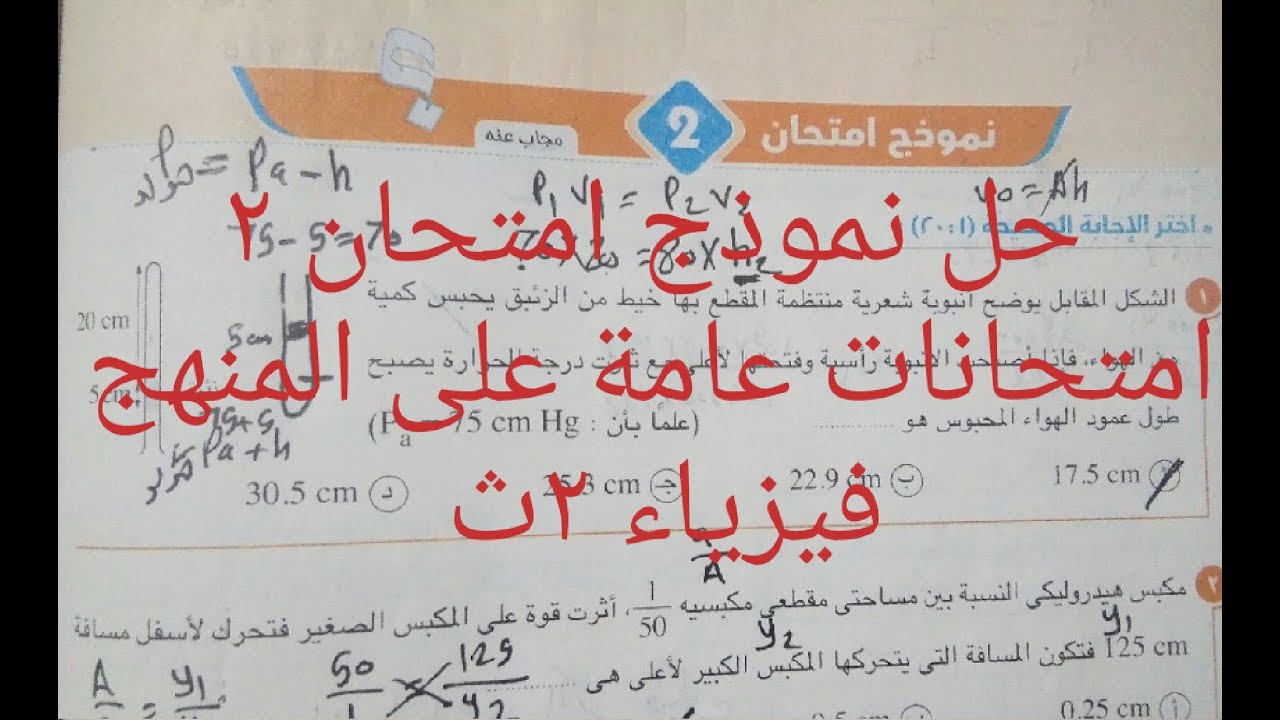 نموذج امتحان 2
مجاب عنه
P = Pa - h
P₁ V₁ = P₂ V₂
Vo = Ah
• اختر الإجابة الصحيحة (١ : ٢٠)
75 - 5 = 70
70 × 20 = 80 × h₂
حل نموذج امتحان ٢
١ الشكل المقابل يوضح أنبوبة شعرية منتظمة المقطع بها خيط من الزئبق يحبس كمية
20 cm
5 cm
امتحانات عامة على المنهج
من الهواء، فإذا أصبحت الأنبوبة رأسية وفتحتها لأعلى مع ثبوت درجة الحرارة يصبح
5 cm
طول عمود الهواء المحبوس هو ............ (علمًا بأن : Pa = 75 cm Hg)
75+5
Pa + h
أ 17.5 cm ب 22.9 cm ج 25.3 cm د 30.5 cm
فيزياء ٢ث
A
٢ مكبس هيدروليكى النسبة بين مساحتى مقطعي مكبسيه 1/50، أثرت قوة على المكبس الصغير فتحرك لأسفل مسافة
y₁
y₂
125 cm فتكون المسافة التى يتحركها المكبس الكبير لأعلى هى ............
A = y₁
50 125
1 y₂
أ 0.25 cm ب 0.5 cm